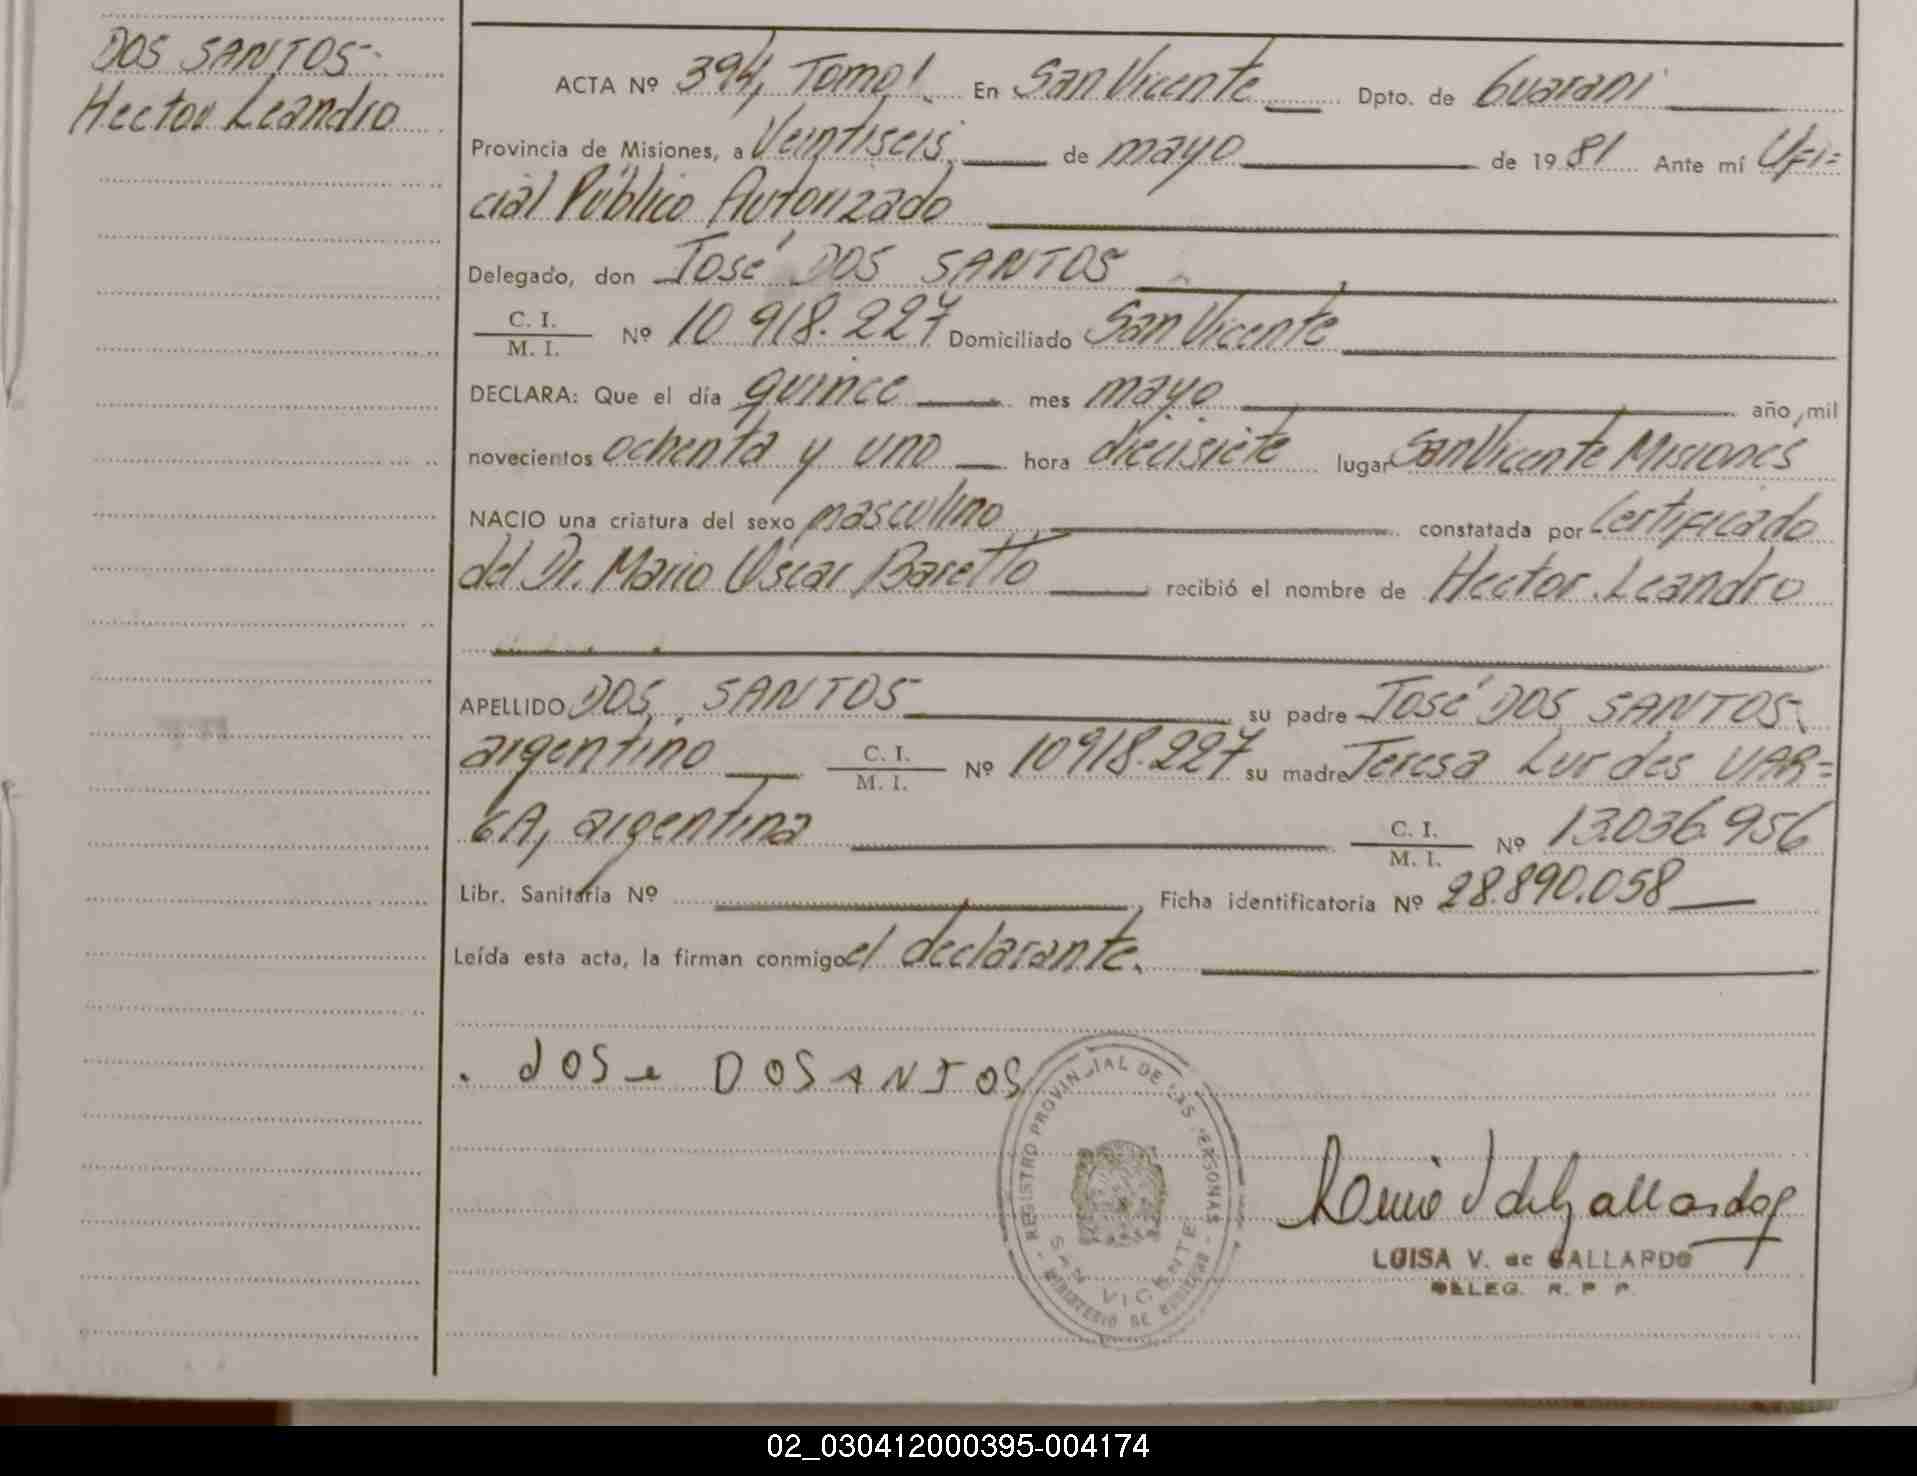 DOS SANTOS-
Hector Leandro
ACTA Nº 394, Tomo I. En San Vicente Dpto. de Guarani
Provincia de Misiones, a Veintiseis de mayo de 1981 Ante mí Ofi=
cial Público Autorizado
Delegado, don José DOS SANTOS
C. I.
M. I. Nº 10.918.227 Domiciliado San Vicente
DECLARA: Que el día quince mes mayo año mil
novecientos ochenta y uno hora diecisiete lugar San Vicente Misiones
NACIO una criatura del sexo masculino constatada por Certificado
del Dr. Mario Oscar Baretto recibió el nombre de Hector Leandro
APELLIDO DOS SANTOS su padre José DOS SANTOS-
argentino C. I.
M. I. Nº 10918.227 su madre Teresa Lurdes VAR=
GA, argentina C. I.
M. I. Nº 13.036.956
Libr. Sanitaria Nº Ficha identificatoria Nº 28.890.058
Leída esta acta, la firman conmigo el declarante.
. JOSe DOSANTOS
REGISTRO PROVINCIAL DE LAS PERSONAS
SAN VICENTE
LUISA V. de GALLARDO
DELEG. R. P. P.
02_030412000395-004174